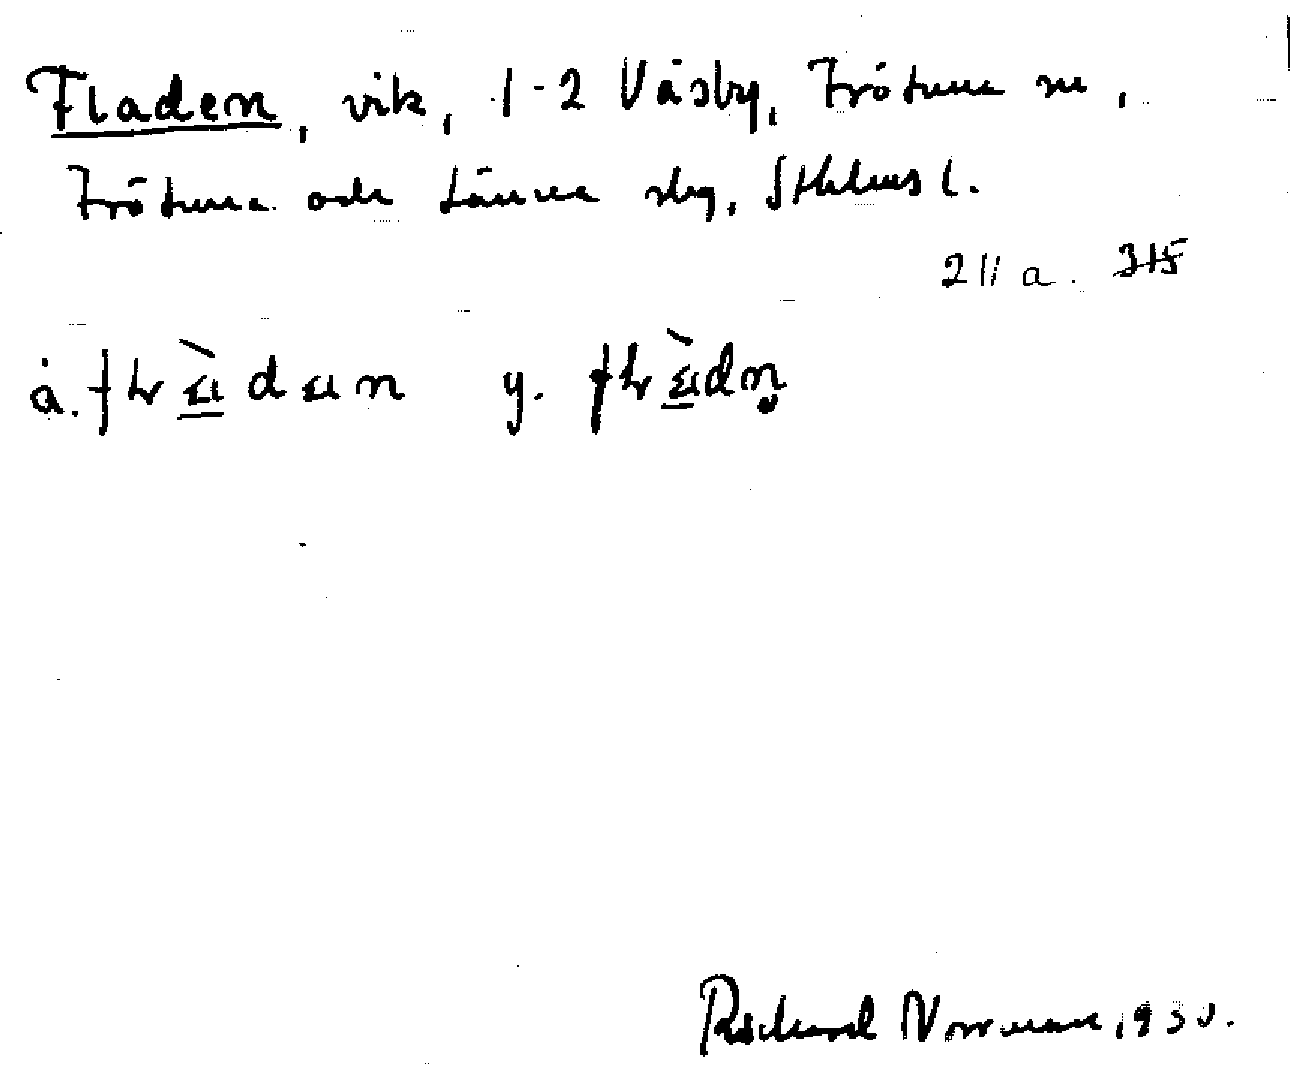 Fladen, vik, 1-2 Väsby, Frötuna sn,
Frötuna och Länna skg, Sthlms l.
211 a. 315
ä. y.
Rickard Norrman, 1930.